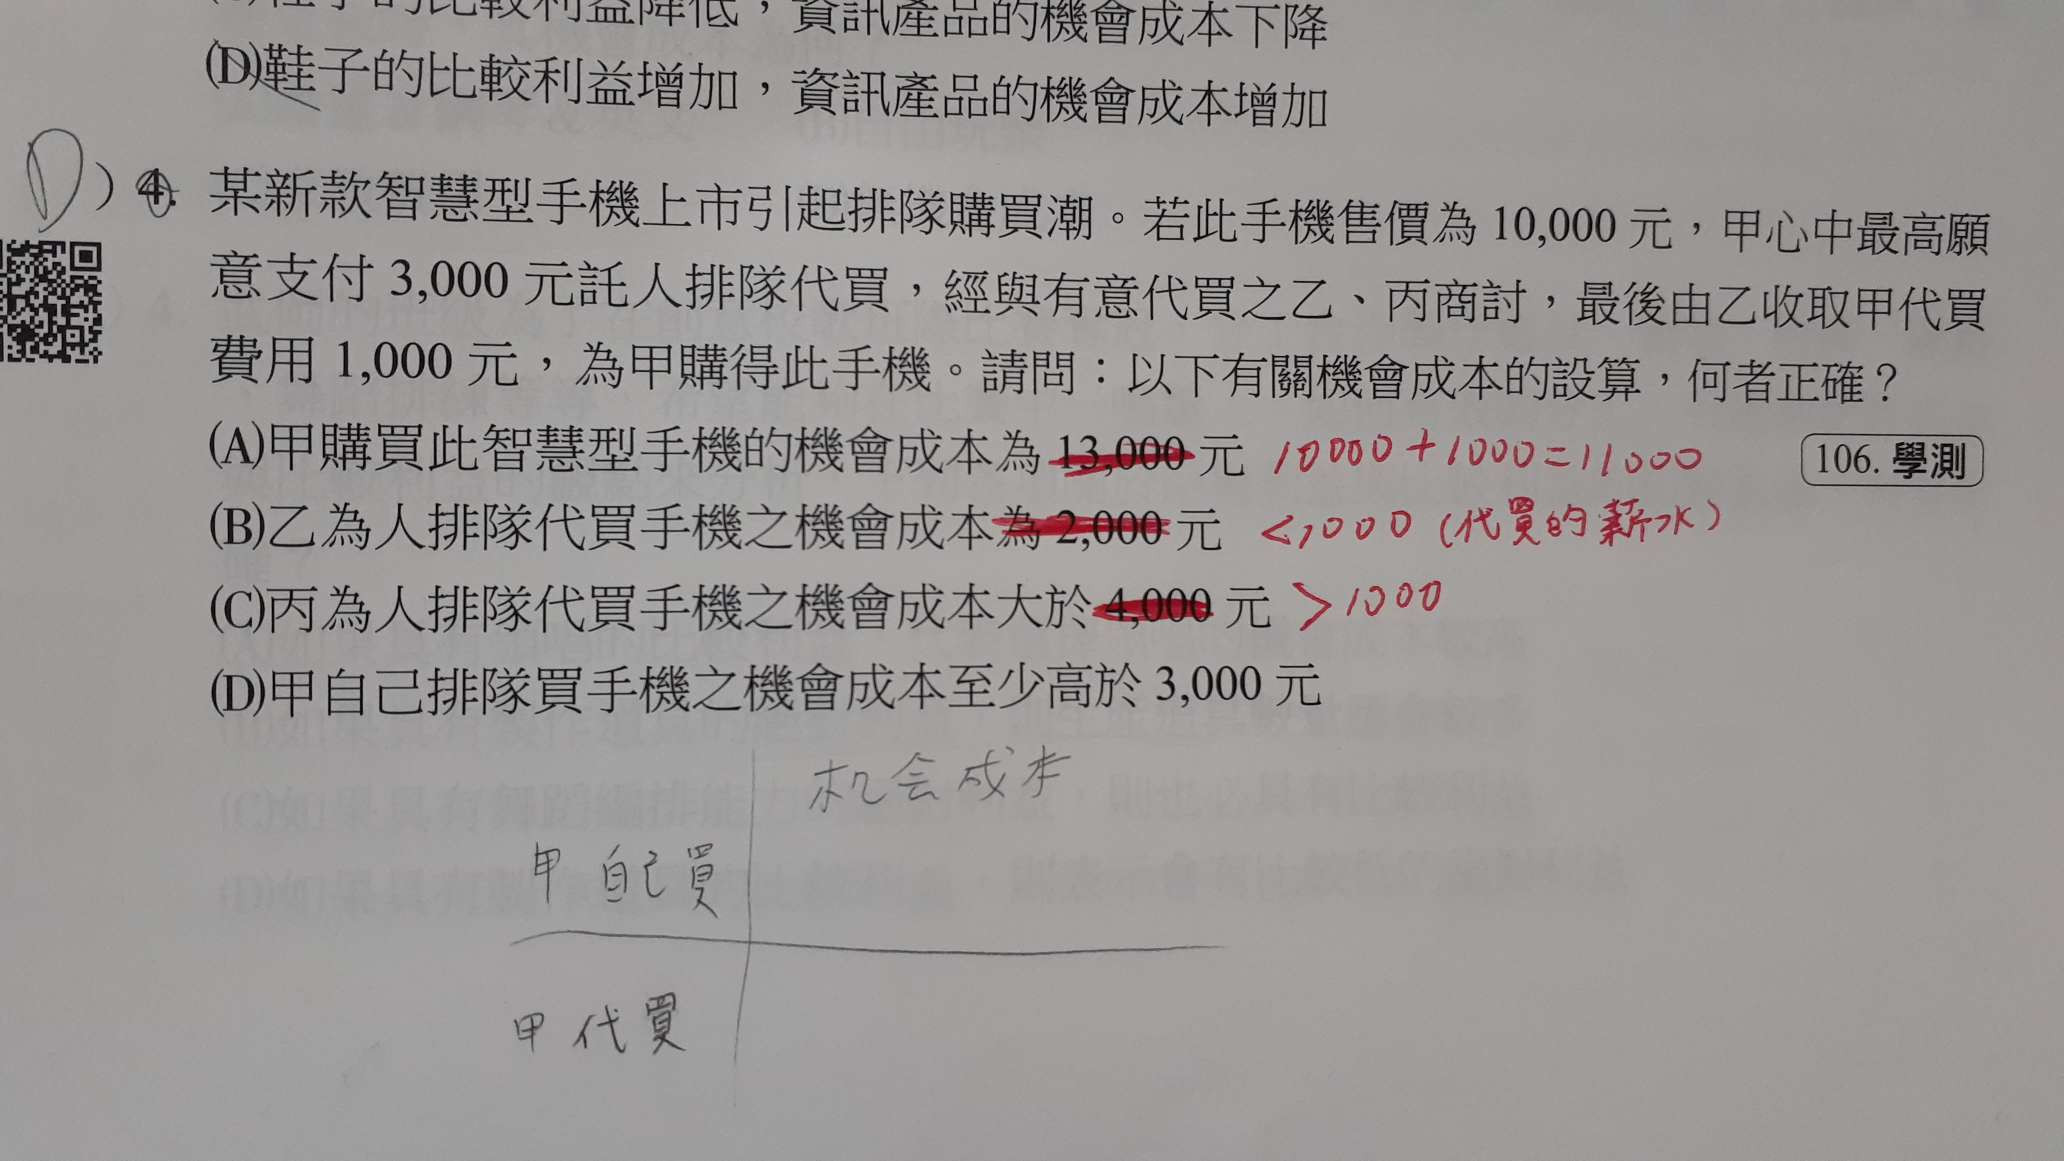 鞋子的比較利益降低，資訊產品的機會成本下降
(D)鞋子的比較利益增加，資訊產品的機會成本增加
D ) 4. 某新款智慧型手機上市引起排隊購買潮。若此手機售價為 10,000 元，甲心中最高願
意支付 3,000 元託人排隊代買，經與有意代買之乙、丙商討，最後由乙收取甲代買
費用 1,000 元，為甲購得此手機。請問：以下有關機會成本的設算，何者正確？
(A)甲購買此智慧型手機的機會成本為 13,000 元 10000+1000=11000 106. 學測
(B)乙為人排隊代買手機之機會成本為 2,000 元 <1000 (代買的薪水)
(C)丙為人排隊代買手機之機會成本大於 4,000 元 >1000
(D)甲自己排隊買手機之機會成本至少高於 3,000 元
机会成本
甲 自己買
甲 代買